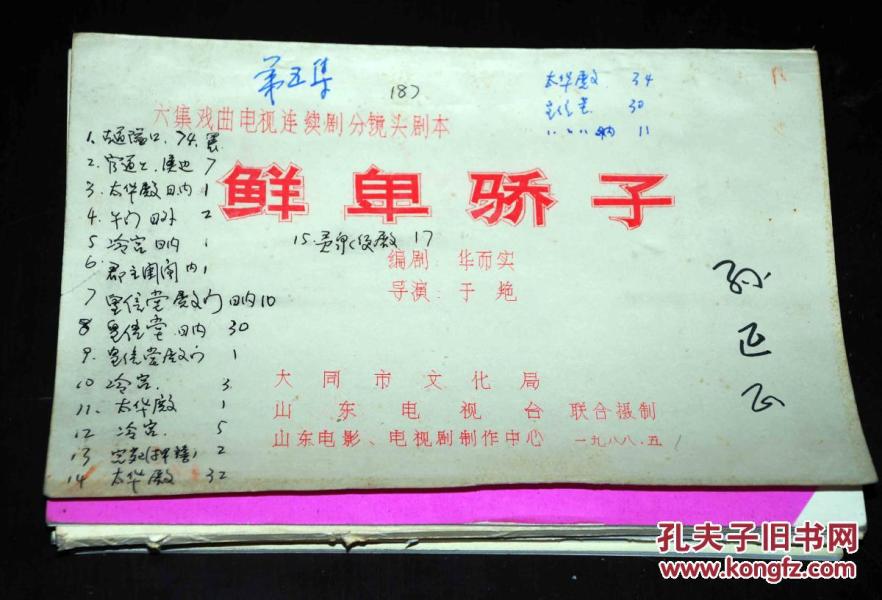 第五集
187
太华殿 34
30
11
六集戏曲电视连续剧分镜头剧本
鲜卑骄子
编剧 华而实
导演：于艳
大同市文化局
山东电视台 联合摄制
山东电影、电视剧制作中心 一九八八·五
1. 74
2. 7
3. 太华殿 日内 1
4. 午门 日外 2
5 冷宫 日内 1
6. 郡主闺阁 内 1
7 殿门 日内 10
8 日内 30
9. 殿门 1
10 冷宫. 3
11. 太华殿 1
12 冷宫. 5
13 2
14 太华殿 32
15. 17
孔夫子旧书网
www.kongfz.com